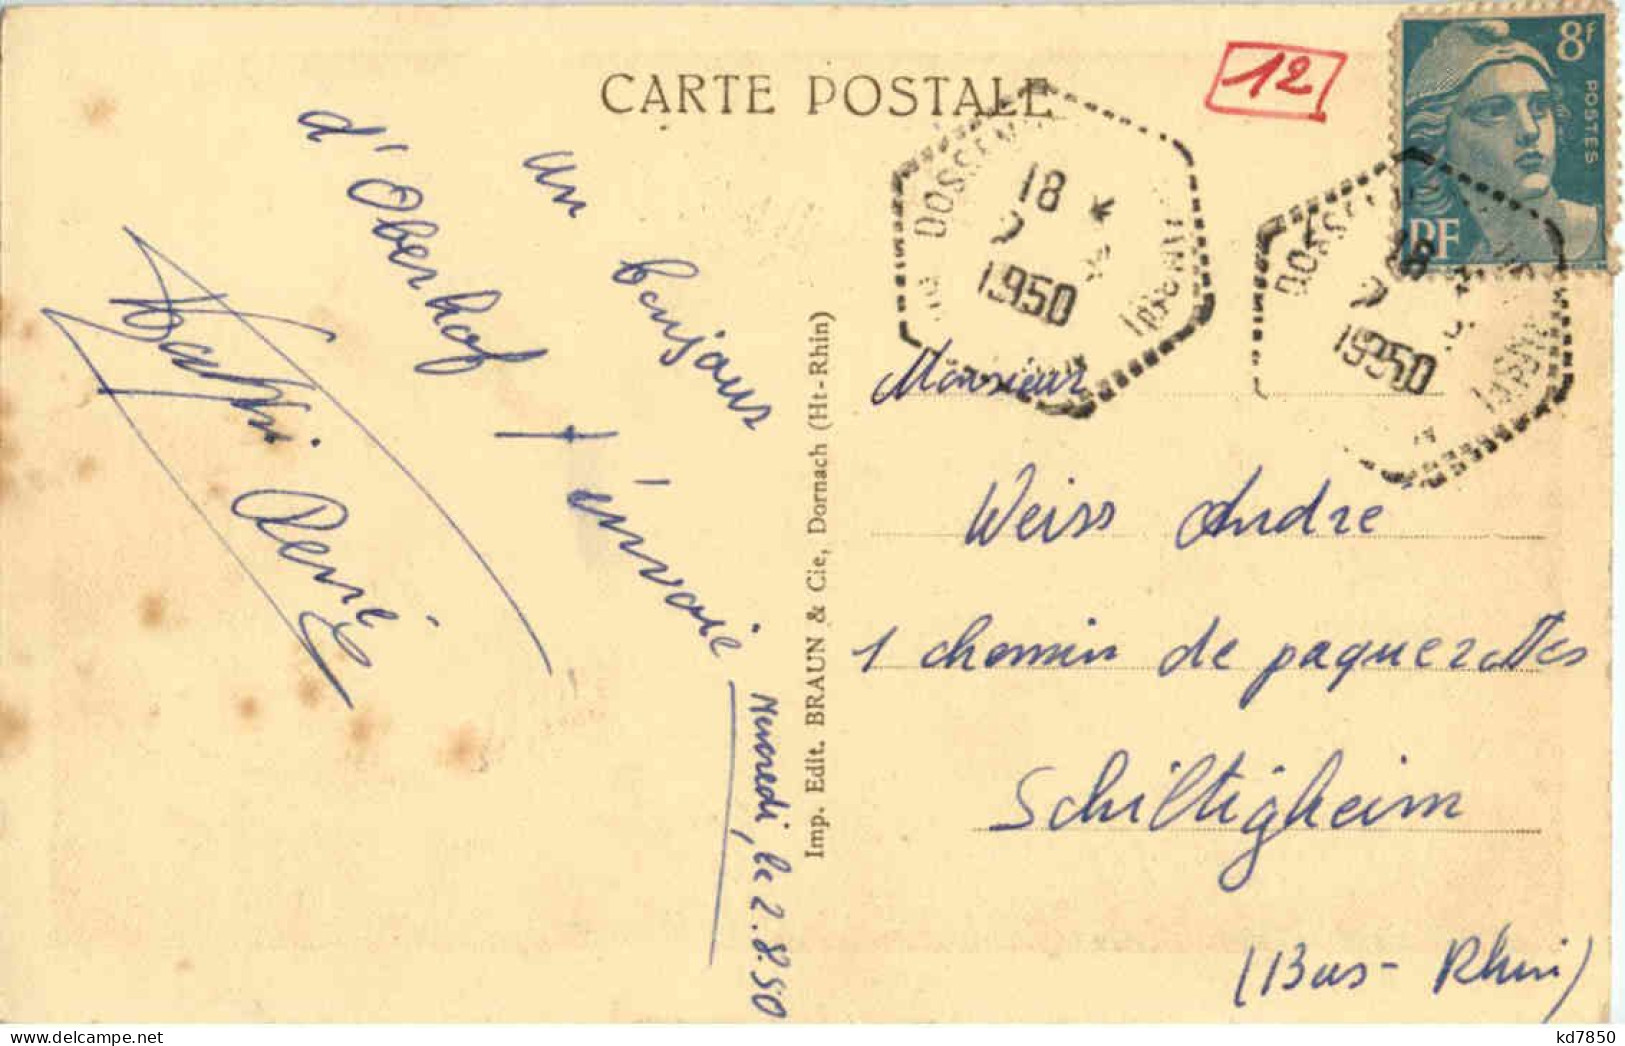 CARTE POSTALE
12
8f
POSTES
RF
18
2
1950
18
1950
un bonjour
d'Oberhof
t'envoie
René
Mercredi, le 2.8.50
Imp. Edit. BRAUN & Cie, Dornach (Ht-Rhin)
Monsieur
Weiss Andre
1 chemin de paquerettes
Schiltigheim
(Bas-Rhin)
kd7850